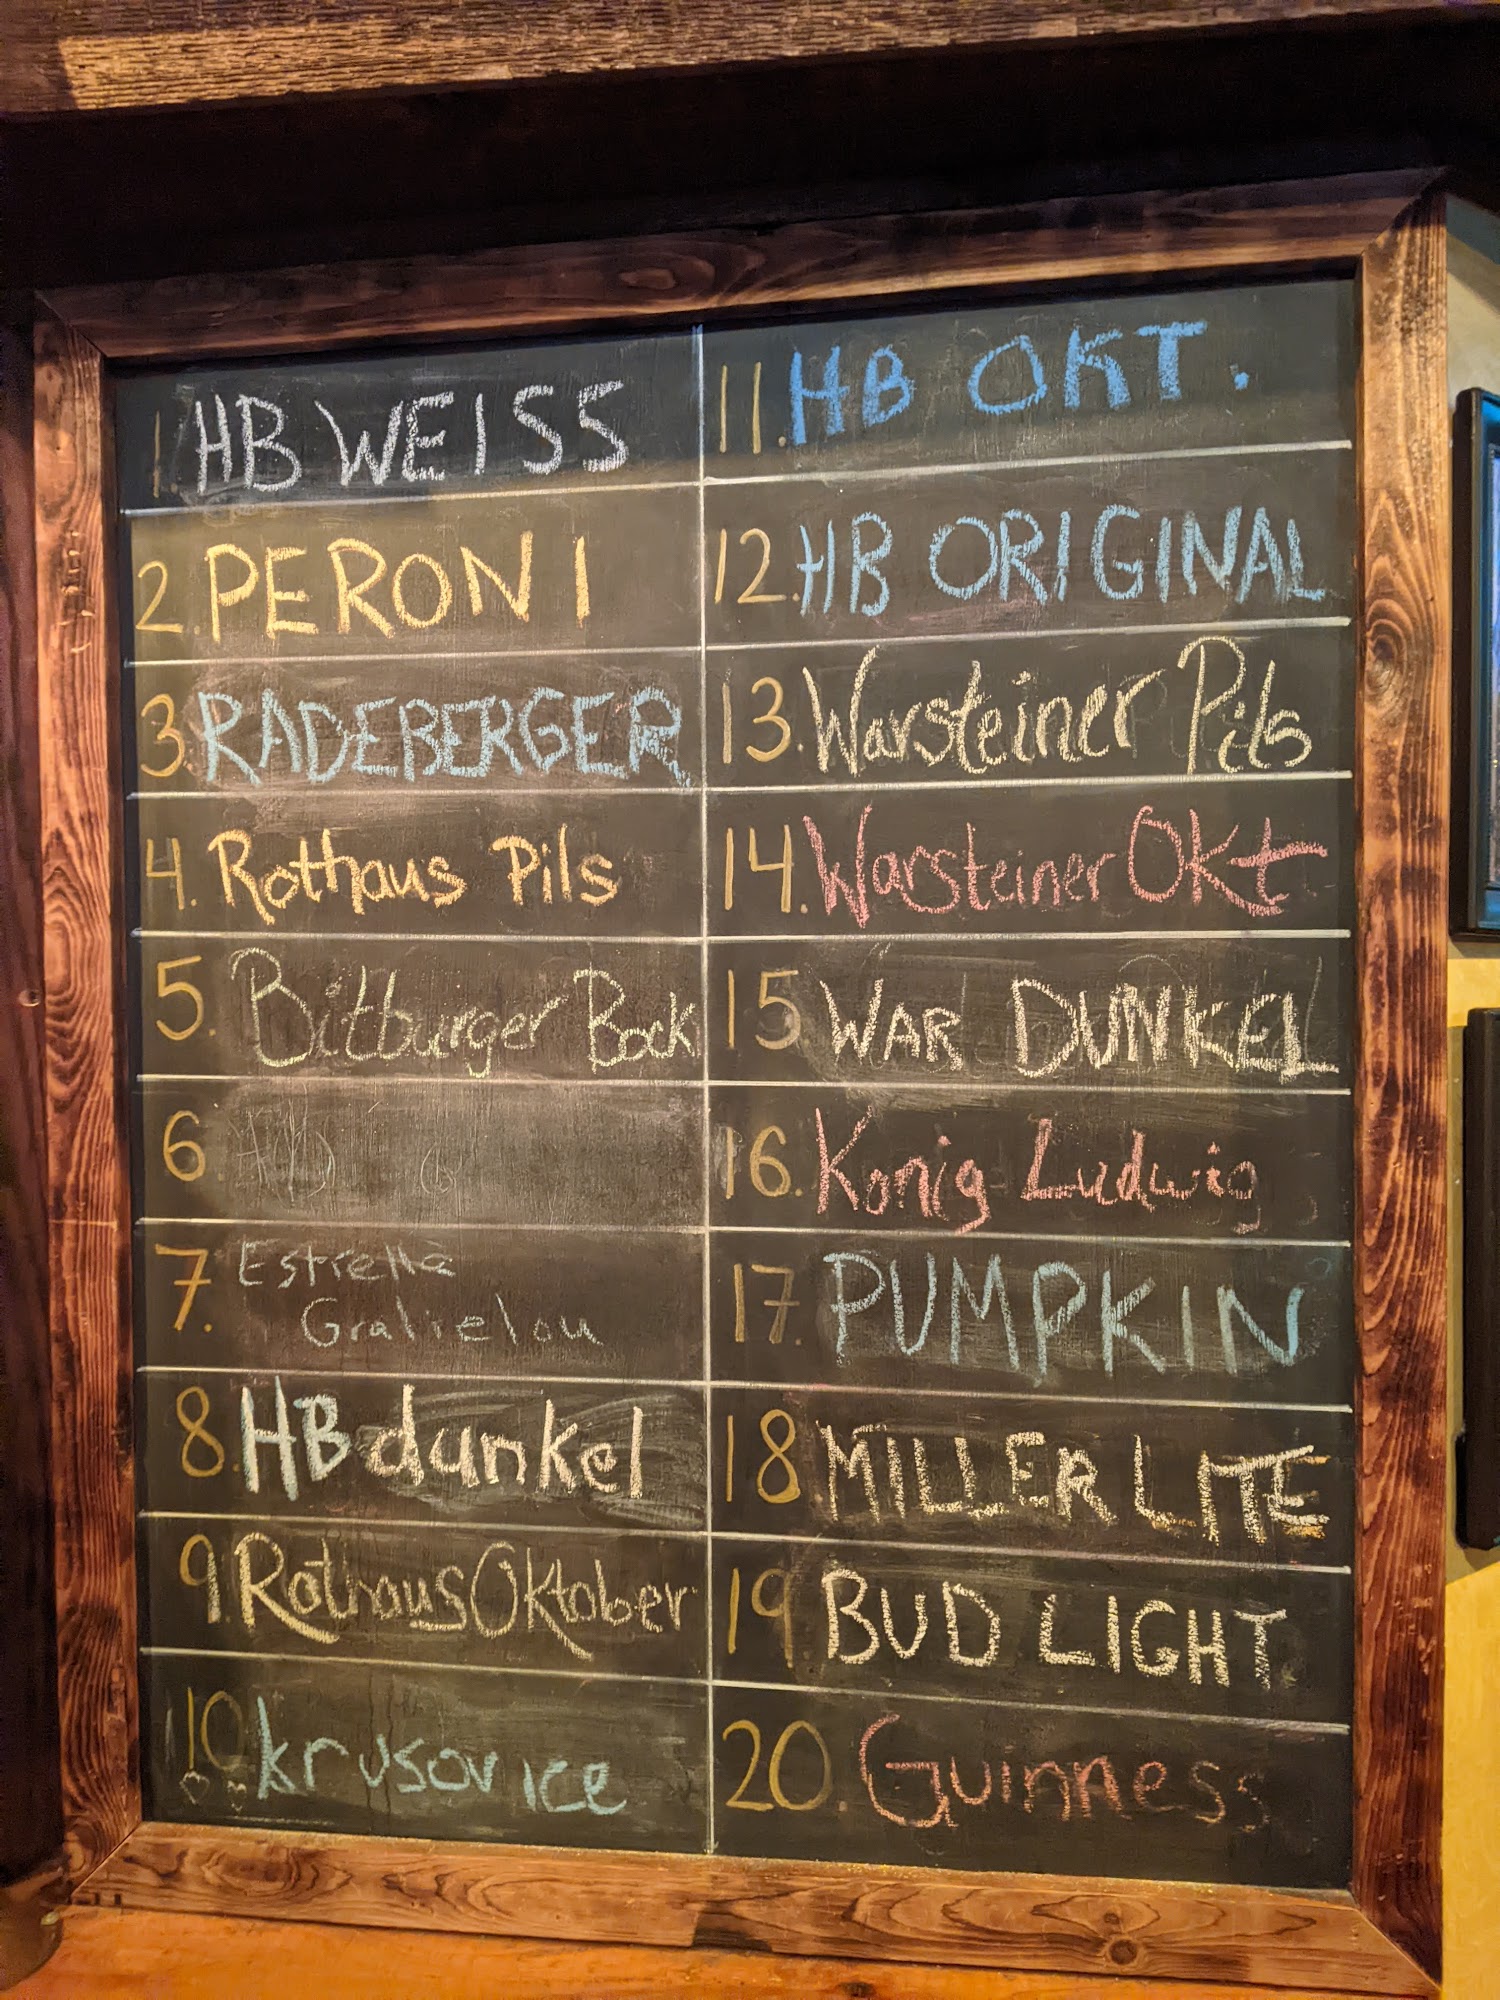 1. HB WEISS
2. PERONI
3. RADEBERGER
4. Rothaus Pils
5. Bitburger Bock
6.
7. Estrella
Gralielou
8. HB dunkel
9. Rothaus Oktober
10 krusovice
11. HB OKT.
12. HB ORIGINAL
13. Warsteiner Pils
14. Warsteiner OKt
15. WAR DUNKEL
16. Konig Ludwig
17. PUMPKIN
18 MILLER LITE
19 BUD LIGHT
20. Guinness